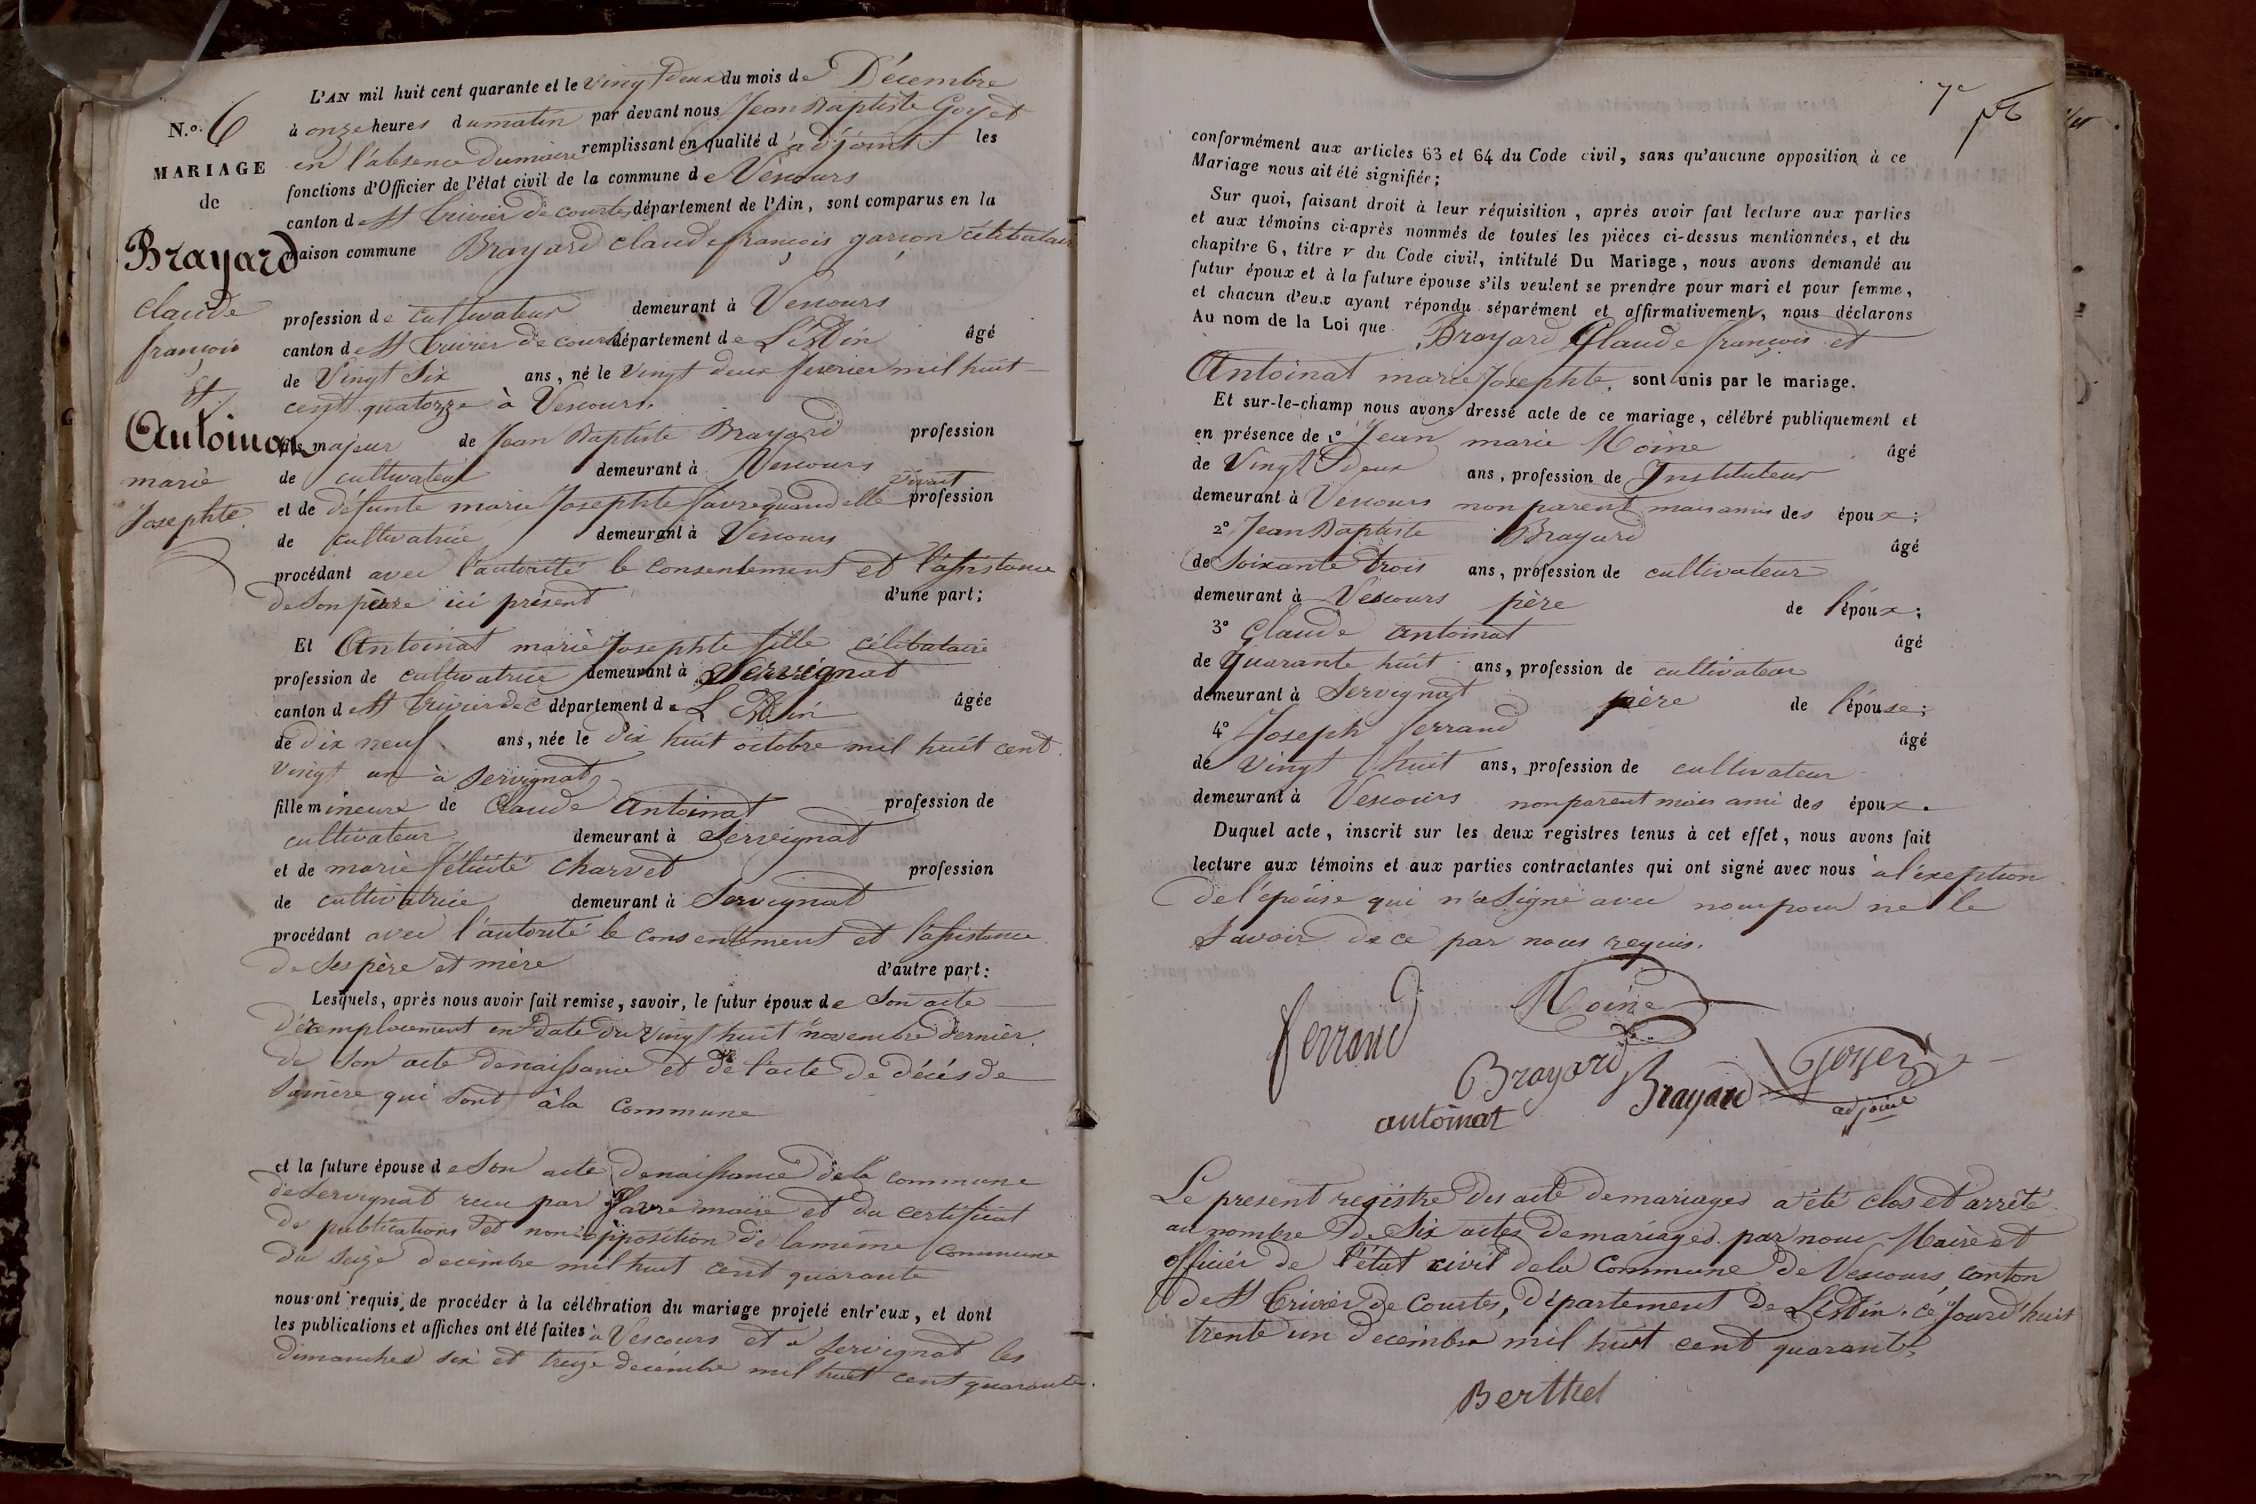 L'AN mil huit cent quarante et le vingt deux du mois de Décembre
N.o 6 à onze heures du matin par devant nous Jean Baptiste Goyet
en l'absence du maire remplissant en qualité d'adjoint les
MARIAGE
fonctions d'Officier de l'état civil de la commune de Vescours
de
canton de St Trivier de courtes département de l'Ain, sont comparus en la
Brayard
maison commune Brayard claude françois garçon célibataire
claude
profession de cultivateur demeurant à Vescours
françois
canton de St Trivier de courtes département de L'Ain âgé
et
de Vingt Six ans, né le vingt deux fevrier mil huit
cent quatorze à Vescours.
Antoinat
fils majeur de Jean Baptiste Brayard profession
marie
de cultivateur demeurant à Vescours
Josephte.
et de défunte marie Josephte favre quand elle vivait profession
de cultivatrice demeurant à Vescours
procédant avec l'autorité le consentement et l'assistance
de Son père ici présent d'une part;
Et Antoinat marie Josephte fille célibataire
profession de cultivatrice demeurant à Servignat
canton de St Trivier de C département de L'Ain âgée
de dix neuf ans, née le dix huit octobre mil huit cent
vingt un à Servignat
fille mineure de Claude Antoinat profession de
cultivateur demeurant à Servignat
et de marie félicité Charvet profession
de cultivatrice demeurant à Servignat
procédant avec l'autorité le consentement et l'assistance
de Ses père et mère d'autre part:
Lesquels, après nous avoir fait remise, savoir, le futur époux de Son acte
de remplacement en date du vingt huit novembre dernier.
de Son acte de naissance et de l'acte de décés de
Sa mère qui sont à la commune
et la future épouse de Son acte de naissance de la commune
de Servignat reçu par favre maire et du certificat
de publications et non opposition de la même commune
du Seize decembre mil huit cent quarante
nous ont requis de procéder à la célébration du mariage projeté entr'eux, et dont
les publications et affiches ont été faites à Vescours et à Servignat les
dimanches six et treize decembre mil huit cent quarante.
7e
conformément aux articles 63 et 64 du Code civil, sans qu'aucune opposition à ce
Mariage nous ait été signifiée;
Sur quoi, faisant droit à leur réquisition, après avoir fait lecture aux parties
et aux témoins ci-après nommés de toutes les pièces ci-dessus mentionnées, et du
chapitre 6, titre v du Code civil, intitulé Du Mariage, nous avons demandé au
futur époux et à la future épouse s'ils veulent se prendre pour mari et pour femme,
et chacun d'eux ayant répondu séparément et affirmativement, nous déclarons
Au nom de la Loi que Brayard Claude françois et
Antoinat marie Josephte, sont unis par le mariage.
Et sur-le-champ nous avons dressé acte de ce mariage, célébré publiquement et
en présence de 1o Jean marie Moine âgé
de Vingt deux ans, profession de Instituteur
demeurant à Vescours non parent mais amis des époux;
2o Jean Baptiste Brayard âgé
de Soixante trois ans, profession de cultivateur
demeurant à Vescours père de l'époux;
3o Claude antoinat âgé
de Quarante huit ans, profession de cultivateur
demeurant à Servignat père de l'épouse;
4o Joseph ferrand âgé
de vingt huit ans, profession de cultivateur
demeurant à Vescours non parent mais ami des époux.
Duquel acte, inscrit sur les deux registres tenus à cet effet, nous avons fait
lecture aux témoins et aux parties contractantes qui ont signé avec nous à l'exeption
de l'épouse qui n'a Signé avec nous pour ne le
Savoir de ce par nous requis.
Moine
ferrand
Brayard Brayard Goyet
antoinat adjoint
Le present registre des acte de mariages a été clos et arrêté
au nombre de Six actes de mariages par nous Maire et
officier de l'état civil de la Commune de Vescours canton
de St Trivier de Courtes, Département de L'Ain. ce jourd'huit
trente un decembre mil huit cent quarante
Berthet